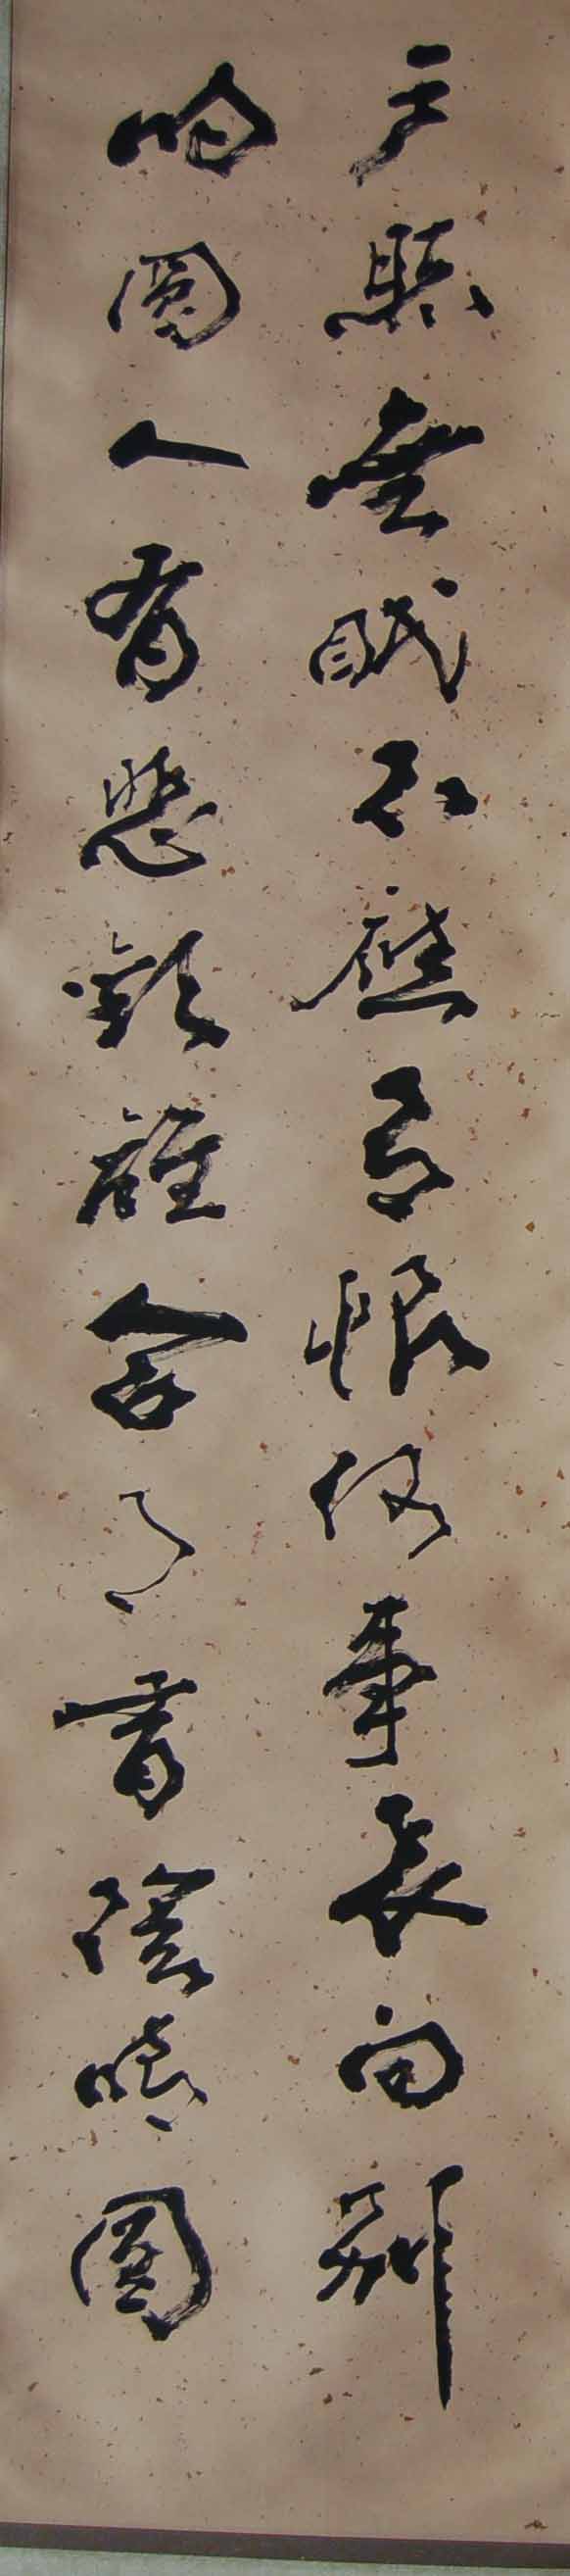 户照無眠不應有恨何事長向別
時圓人有悲歡離合月有陰晴圓